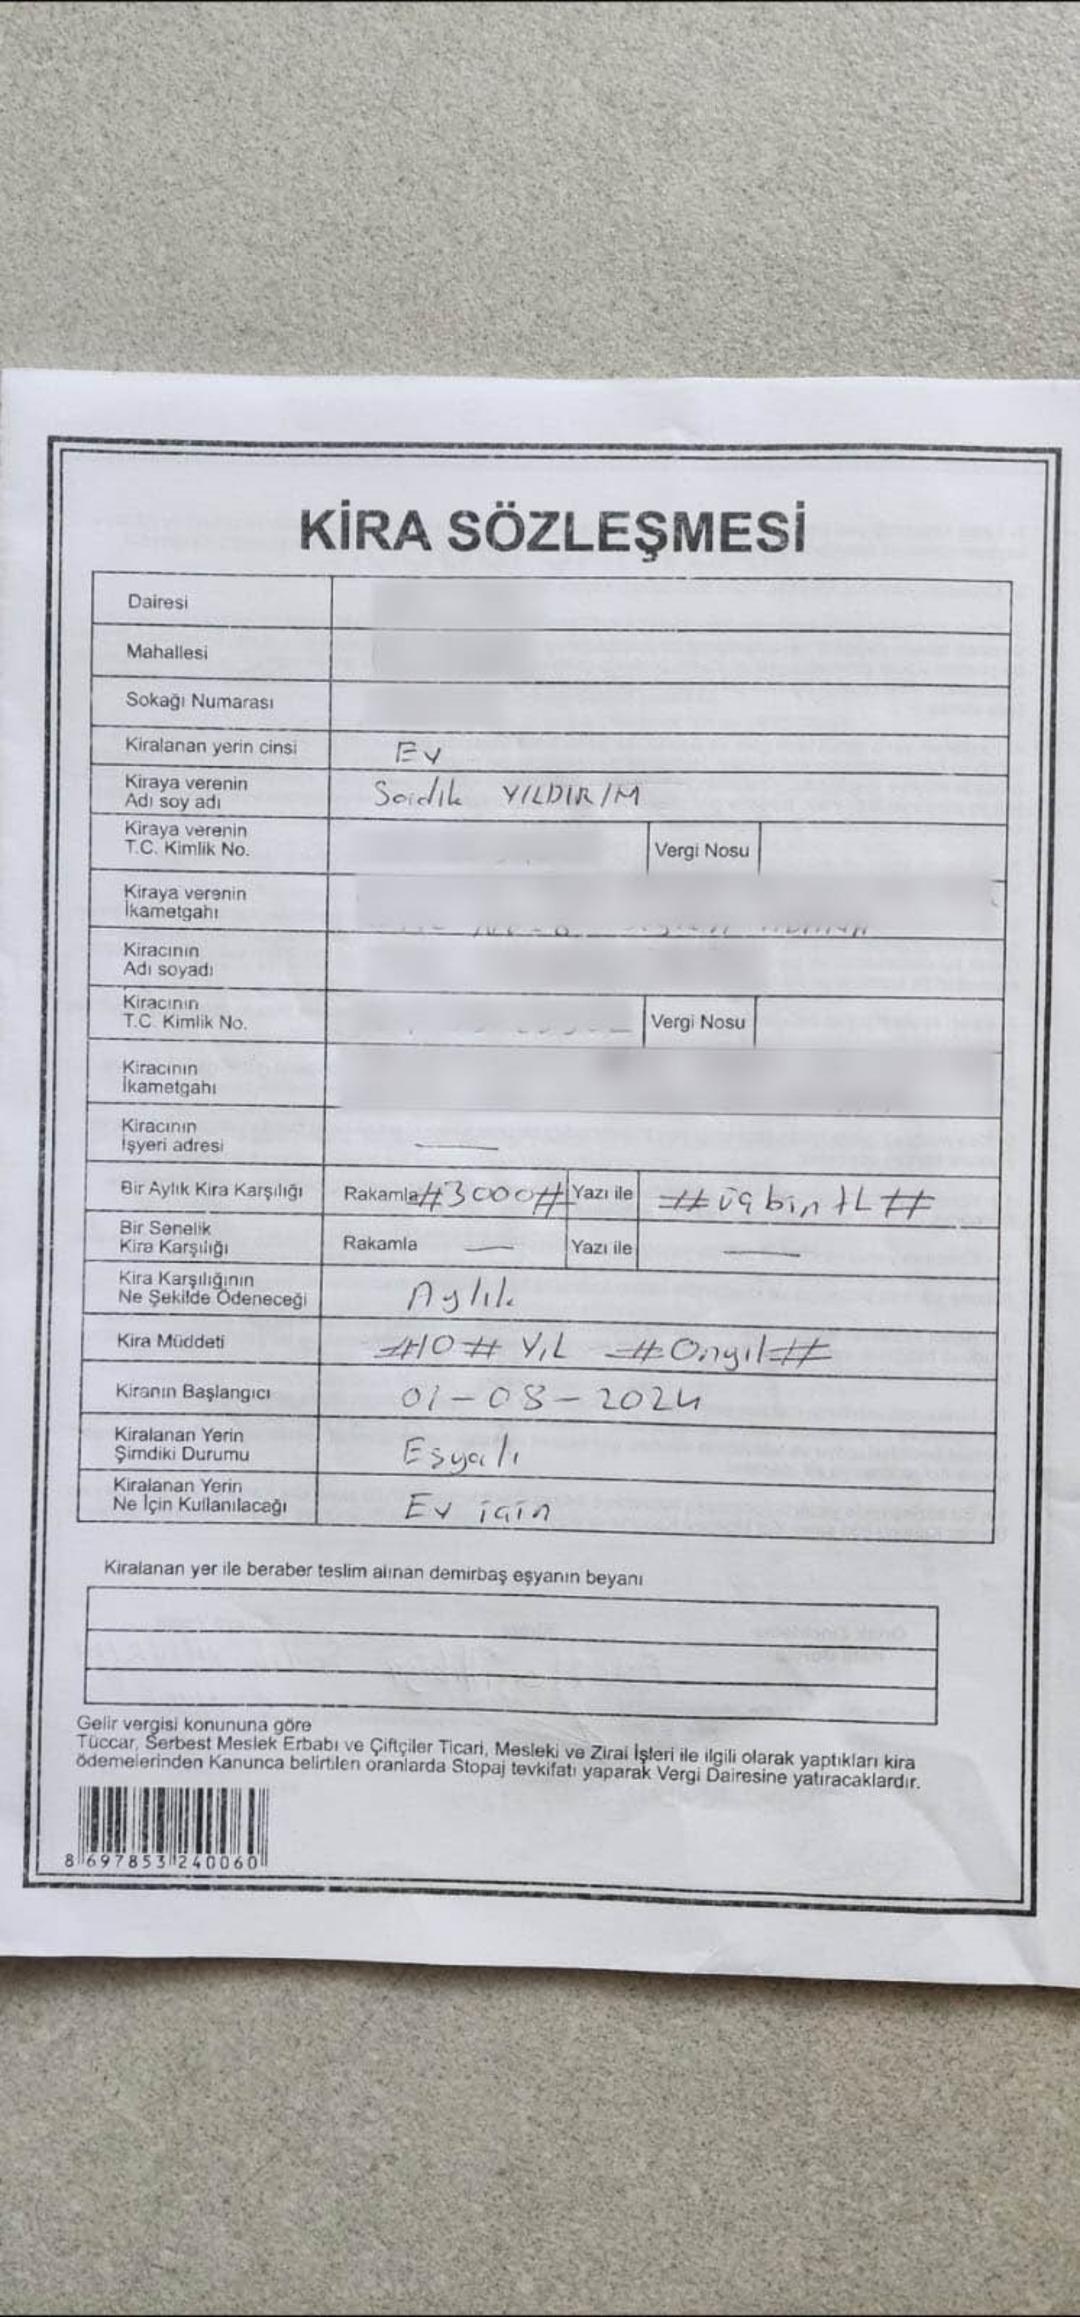 KİRA SÖZLEŞMESİ
Dairesi
Mahallesi
Sokağı Numarası
Kiralanan yerin cinsi Ev
Kiraya verenin
Adı soy adı Saidık YILDIRIM
Kiraya verenin
T.C. Kimlik No. Vergi Nosu
Kiraya verenin
İkametgahı
Kiracının
Adı soyadı
Kiracının
T.C. Kimlik No. Vergi Nosu
Kiracının
İkametgahı
Kiracının
İşyeri adresi —
Bir Aylık Kira Karşılığı Rakamla #3000# Yazı ile # üçbin tL #
Bir Senelik
Kira Karşılığı Rakamla — Yazı ile —
Kira Karşılığının
Ne Şekilde Ödeneceği Aylık
Kira Müddeti #10# YıL #Onyıl#
Kiranın Başlangıcı 01-08-2024
Kiralanan Yerin
Şimdiki Durumu Eşyalı
Kiralanan Yerin
Ne İçin Kullanılacağı Ev için
Kiralanan yer ile beraber teslim alınan demirbaş eşyanın beyanı
Gelir vergisi konununa göre
Tüccar, Serbest Meslek Erbabı ve Çiftçiler Ticari, Mesleki ve Zirai İşleri ile ilgili olarak yaptıkları kira
ödemelerinden Kanunca belirtilen oranlarda Stopaj tevkifatı yaparak Vergi Dairesine yatıracaklardır.
8 697853 240060